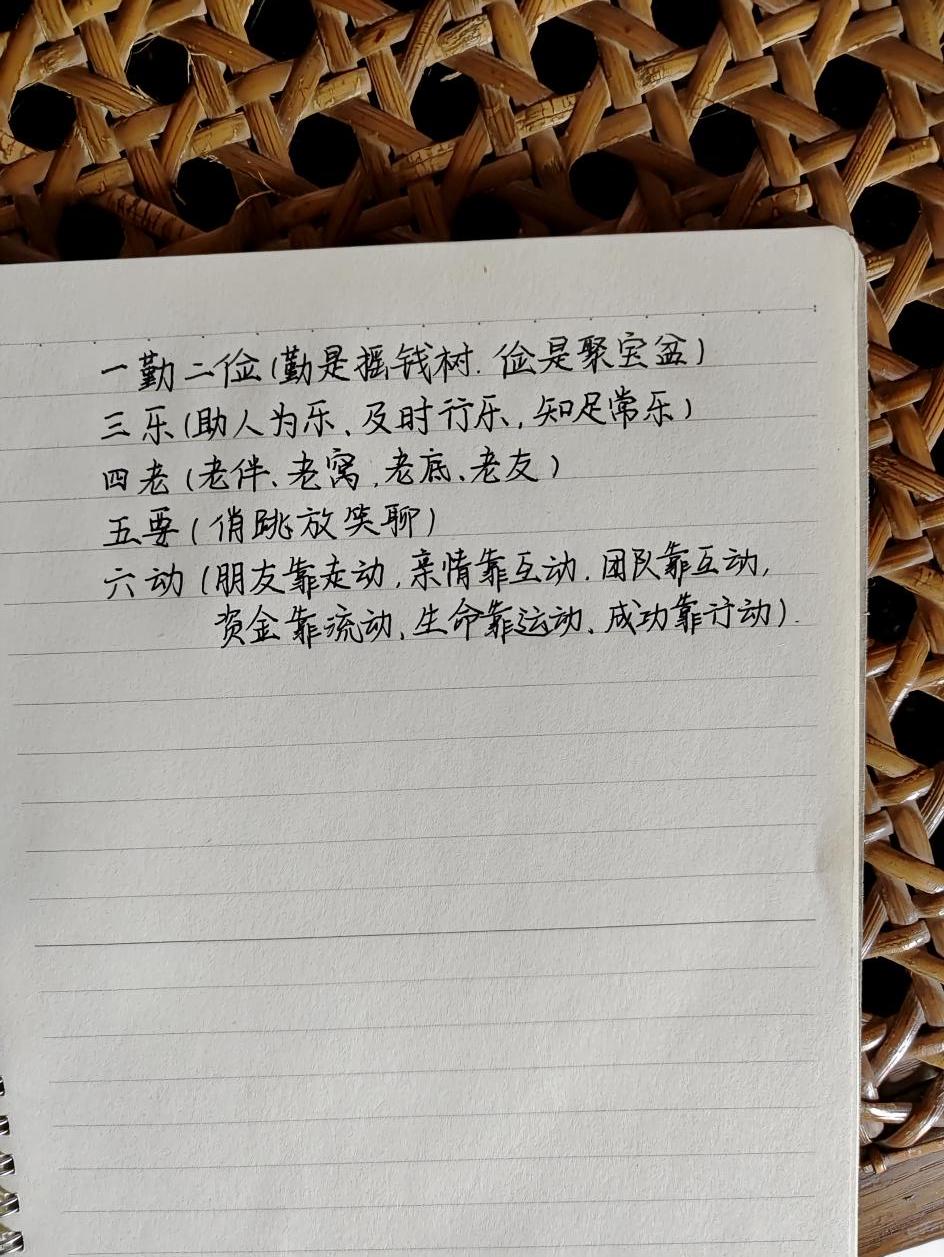 一勤二俭(勤是摇钱树.俭是聚宝盆)
三乐(助人为乐、及时行乐,知足常乐)
四老(老伴、老窝,老底、老友)
五要(俏跳放笑聊)
六动(朋友靠走动,亲情靠互动.团队靠互动,
资金靠流动、生命靠运动、成功靠行动).